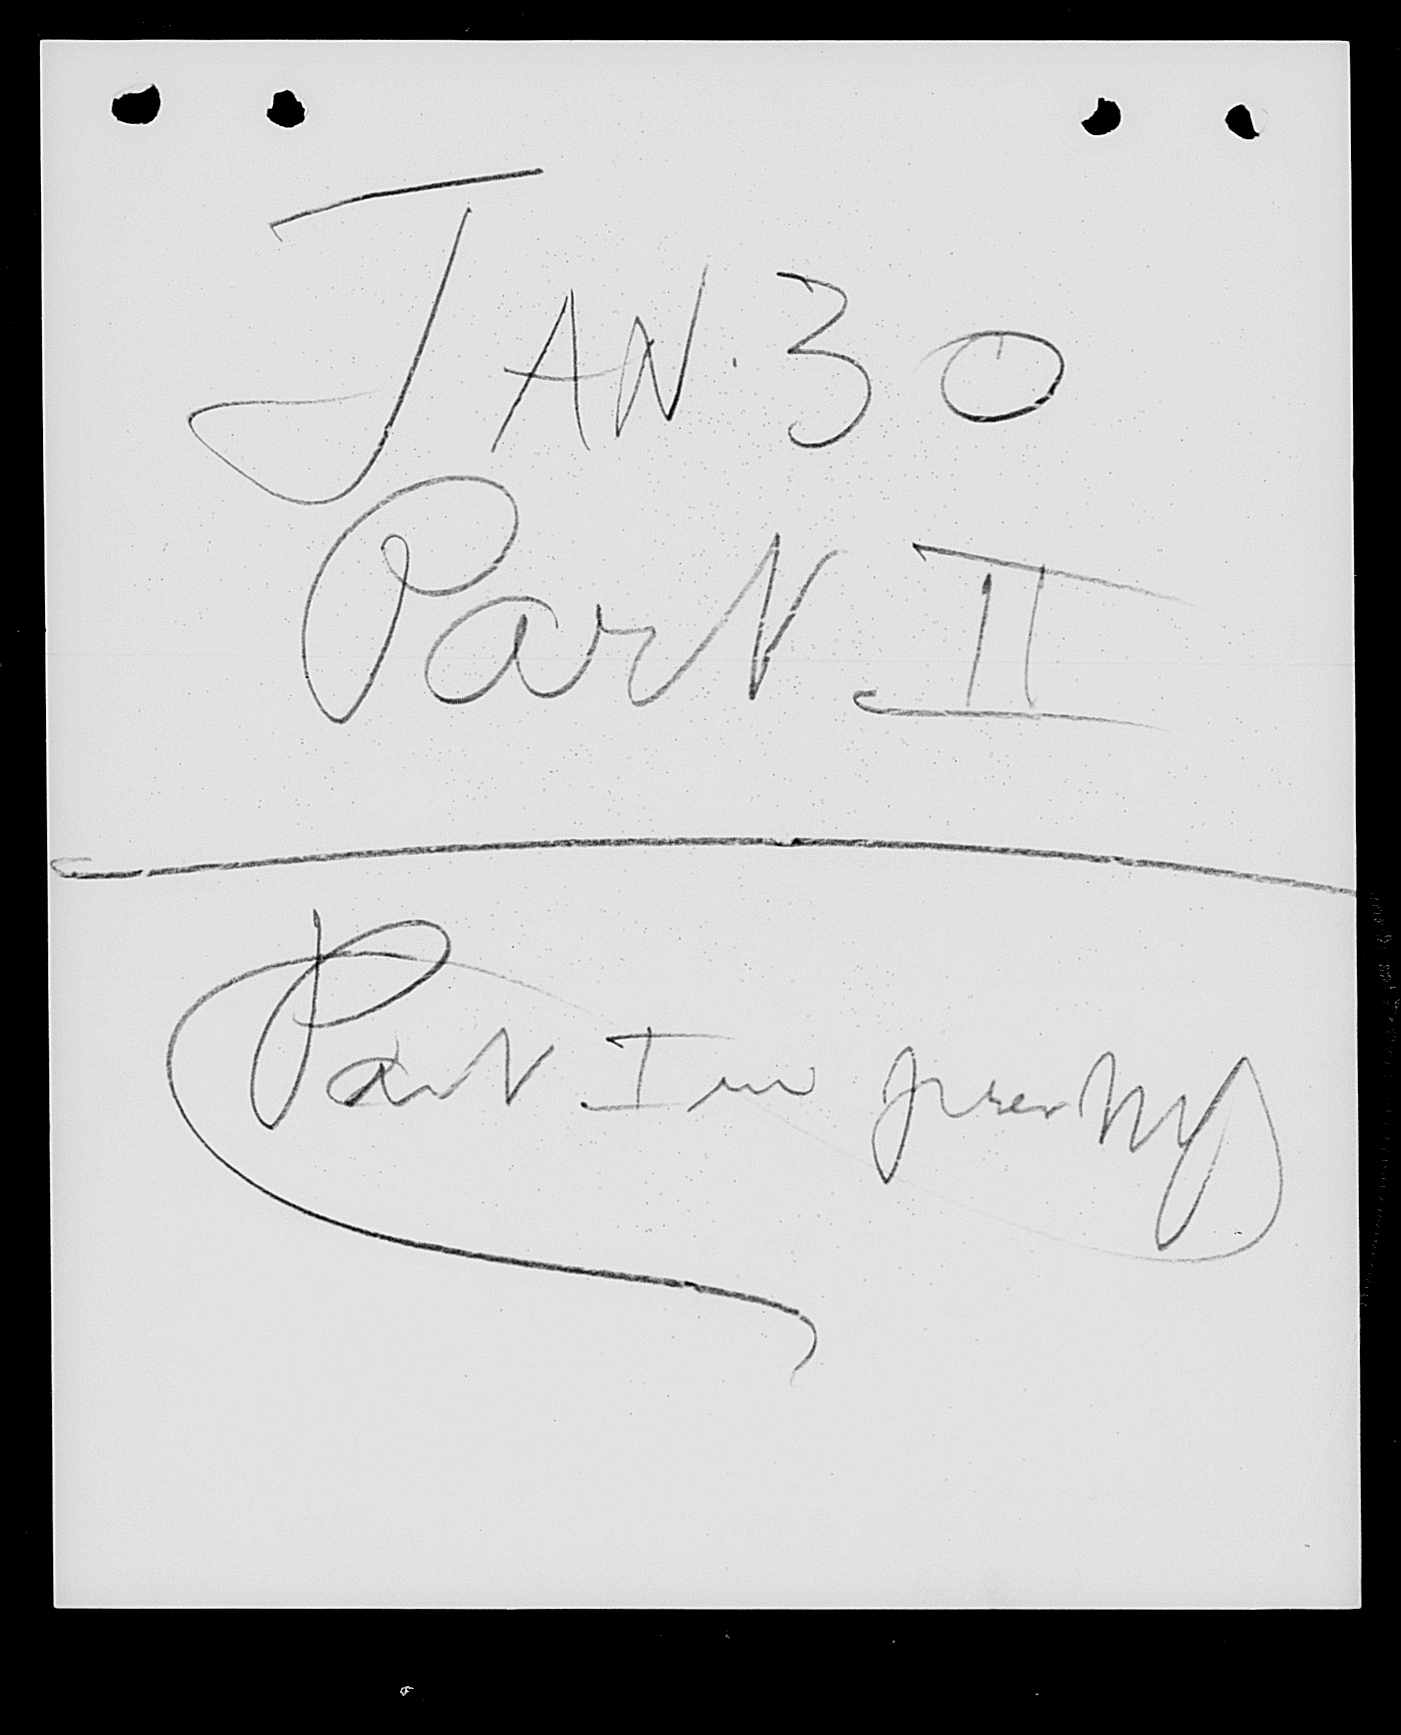 JAN. 30
Part II
Part I in